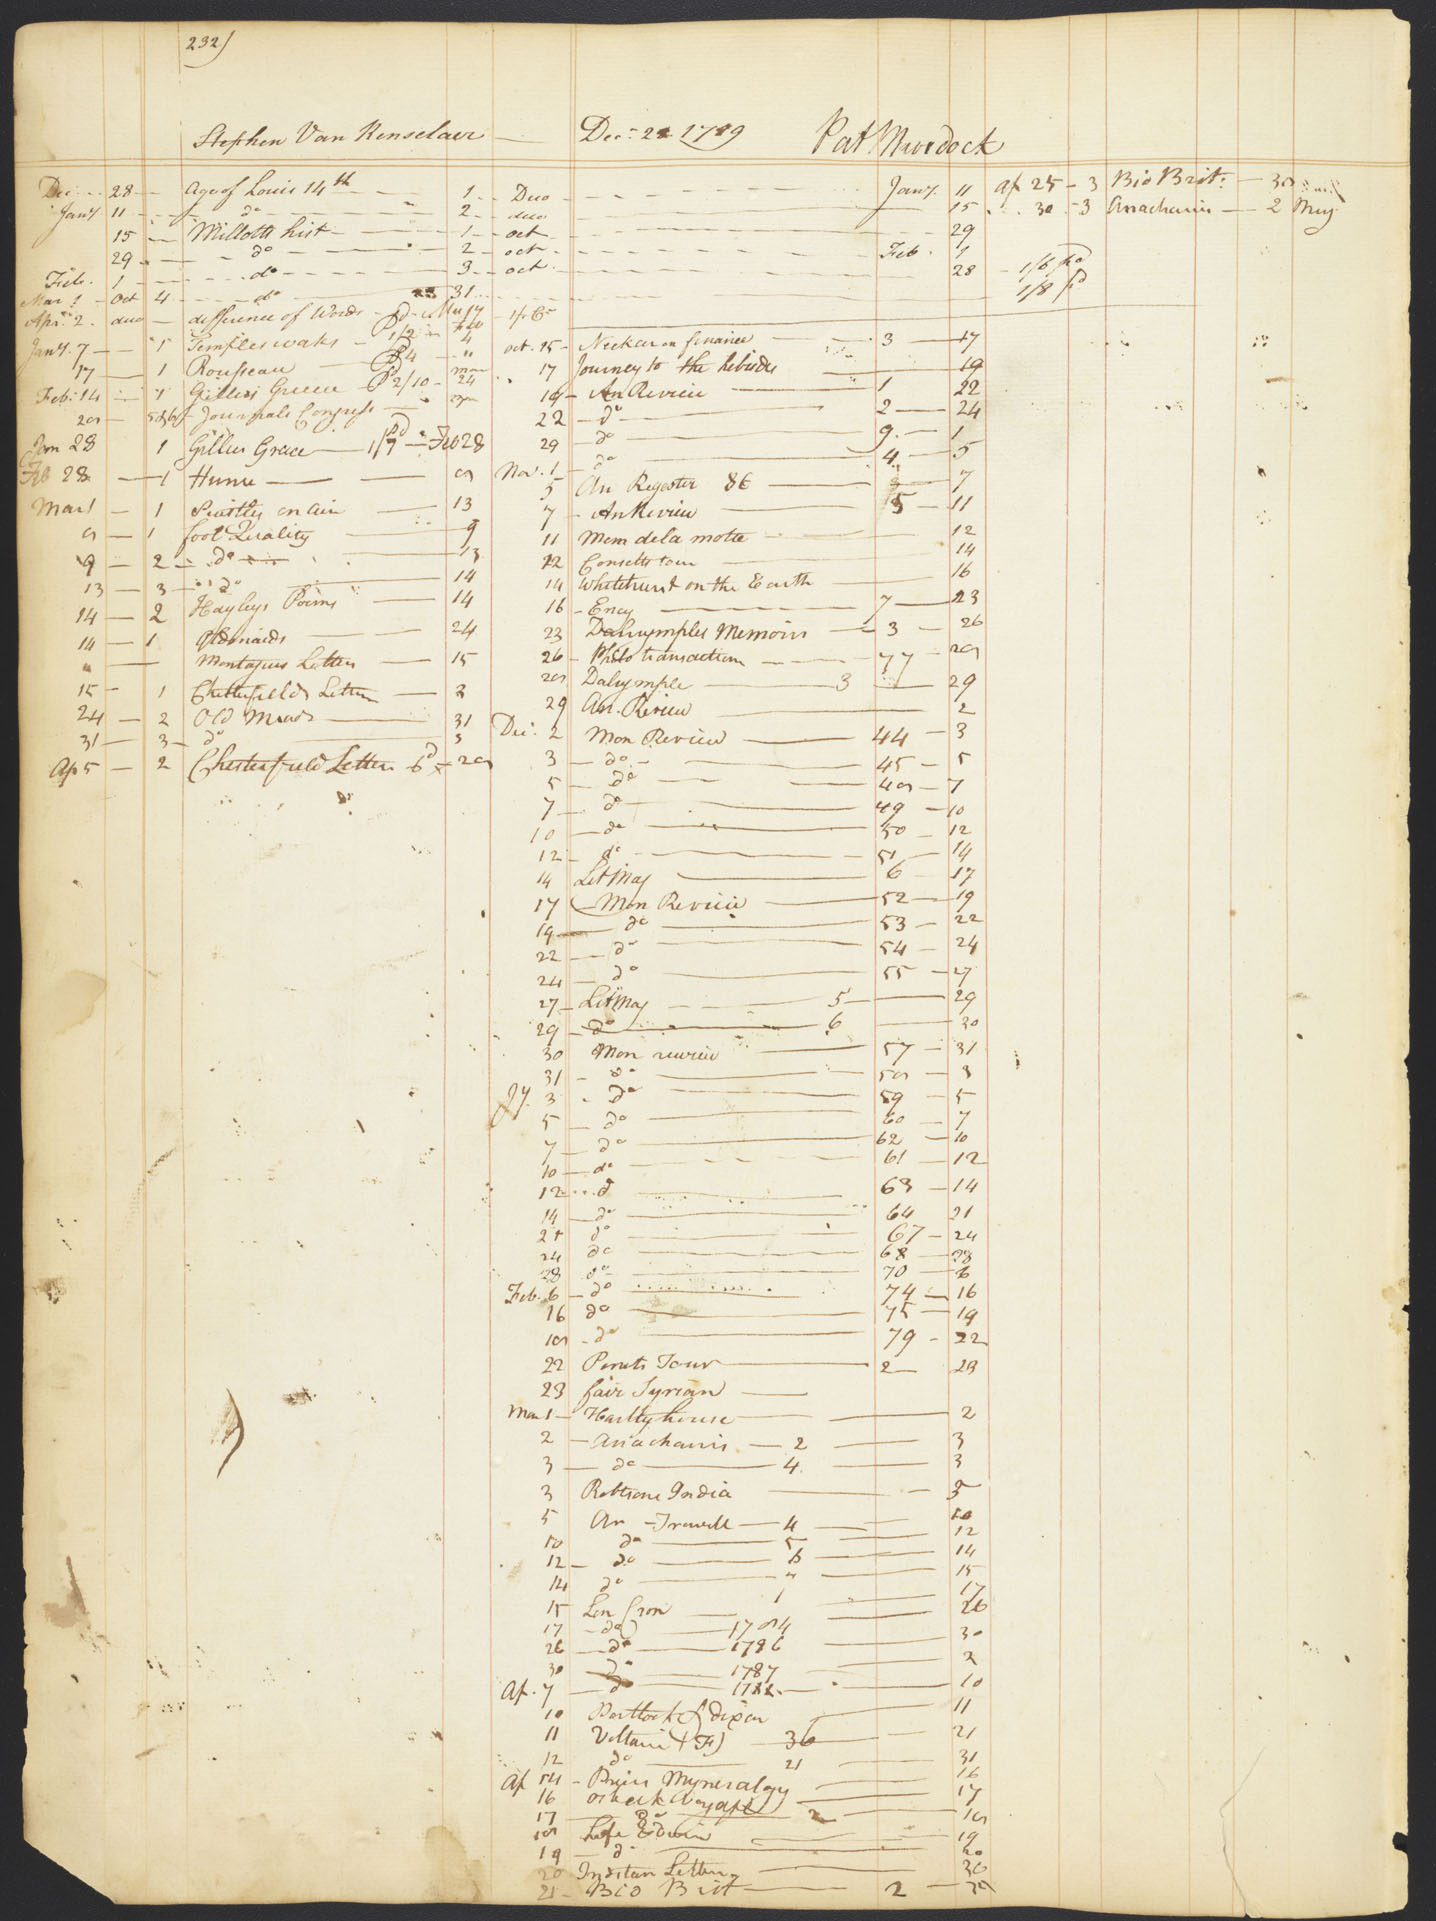 232)
Stephen Van Renselaer — Dec: 28 1789
Pat Murdock
Dec 28 Age of Louis 14th 1 Duo Jany 11
Jany 11 do 2 duo 15
15 Millotts hist 1 oct 29
29 do 2 oct Feb. 1
Feb. 1 do 3 oct 28 1/6 pd
Mar 1 Oct 4 do 31 1/8 pd
Apr. 2 duo difference of Words
Jany 7 1 Temples works 1/2 4
17 1 Rousseau
Feb: 14 1 Gillies Greece 2/10 24
5 & 6 Journals Congress
Jan 28 1 Gillies Greece 1/7 Feb 28
Feb 28 1 Hume 8
Mar 1 1 Priestley on air 13
8 1 fool Quality 9
9 2 do 13
13 3 do 14
14 2 Hayleys Poems 14
14 1 Old maids 24
Montagues Letters 15
15 1 Chesterfields Letters 3
24 2 Old Maids 31
31 3 do 3
Ap 5 2 Chesterfield Letters 6d 28
oct. 15 Neckar on finance 3 17
17 Journey to the hebrides 19
19 An Review 1 22
22 do 2 24
29 do 9 1
Nov. 1 do 4 5
5 An Register 86 7
7 An Review 5 11
11 Mem de la motte 12
12 Consetts tour 14
14 Whitehurst on the Earth 16
16 Ency 7 23
23 Dalrymples Memoirs 3 26
26 Philo transaction 77 28
28 Dalrymple 3 29
29 An. Review 2
Dec. 2 Mon Review 44 3
3 do 45 5
5 do 48 7
7 do 49 10
10 do 50 12
12 do 51 14
14 Lit Mag 6 17
17 Mon Review 52 19
19 do 53 22
22 do 54 24
24 do 55 27
27 Lit Mag 5 29
29 do 6 30
30 Mon review 57 31
31 do 58 3
Jy. 3 do 59 5
5 do 60 7
7 do 62 10
10 do 61 12
12 do 63 14
14 do 64 21
21 do 67 24
24 do 68 28
28 do 70 6
Feb. 6 do 74 16
16 do 75 19
18 do 79 22
22 Tour 2 23
23 fair Syrian
Mar 1 Hartly house 2
2 Anacharsis 2 3
3 do 4 3
3 Robtsons India 5
5 An Travell 4 10
10 do 5 12
12 do 6 14
14 do 7 15
15 Lon Cron 1 17
17 do 1784 26
26 do 1786 30
30 do 1787 2
Ap. 7 do 1788 10
10 Portlock & dixon 11
11 Voltaire (F) 36 21
12 do 21 31
Ap 14 Myneralogy 16
16 Voyage 17
17 do 2 18
18 Life Edwin 19
19 do 20
20 Indian Letters 30
21 Bio Brit 2 30
Ap 25 3 Bio Brit: 30
30 3 Anacharsis 2 May